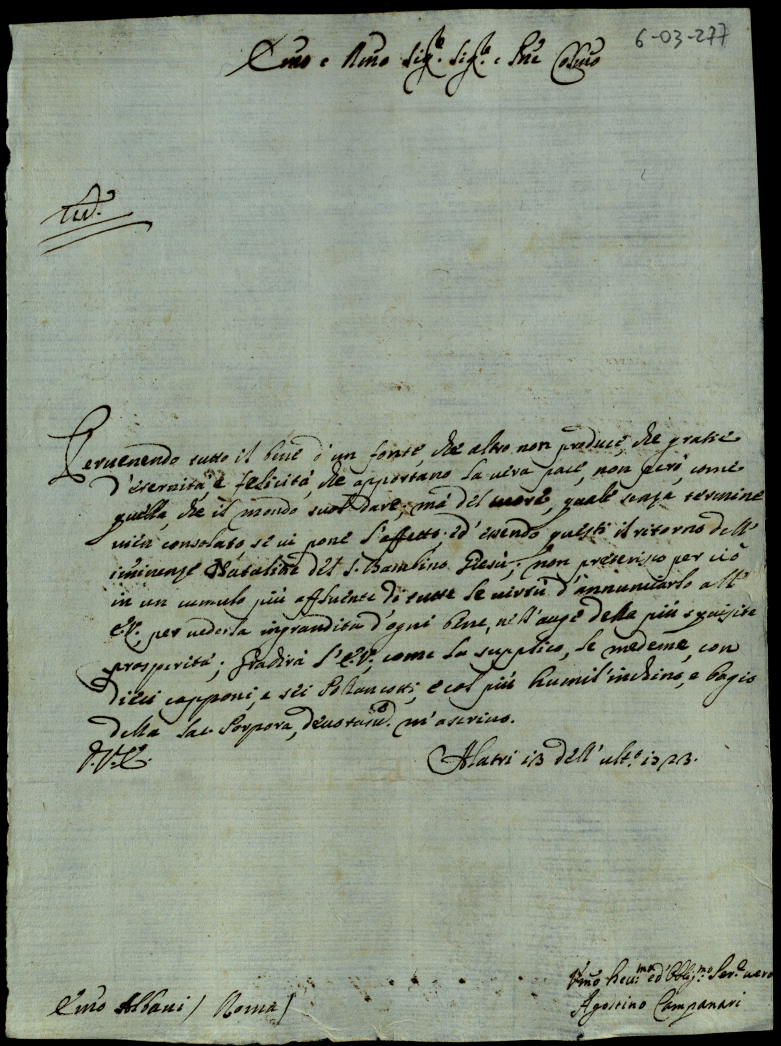 6-03-277
Em̃o e Rm̃o Sig.r Sig.r e Prñe Colm̃o
Peruenendo tutto il bene d'un fonte, che altro non produce, che gratie
d'eternità, e felicità, che apportano la uera pace, non però, come
quella, che il mondo suol dare; mà del cuore, quale senza termine
uien consolato, se ui pone l'affetto; ed' essendo questi il ritorno dell'
iminenze Natalizie del S. Bambino Giesù; non preterisco per ciò
in un cumulo più affluente di tutte le uirtù d'annuntiarlo all'
E.V. per uederla ingrandita d'ogni bene, nell'auge delle più squisite
prosperità; Gradirà l'E.V., come la supplico, le medeme, con
dieci capponi, e sei Pollancotti, e col più humil'inchino, e bagio
della Sac. Porpora, deuotam.e m'ascriuo.
D.V.E. Alatri 13 dell' ult.o 1723.
Um̃o Deu.mo ed' Obblig.mo Ser.e uero
Em̃o Albani / Roma / Agostino Campanari